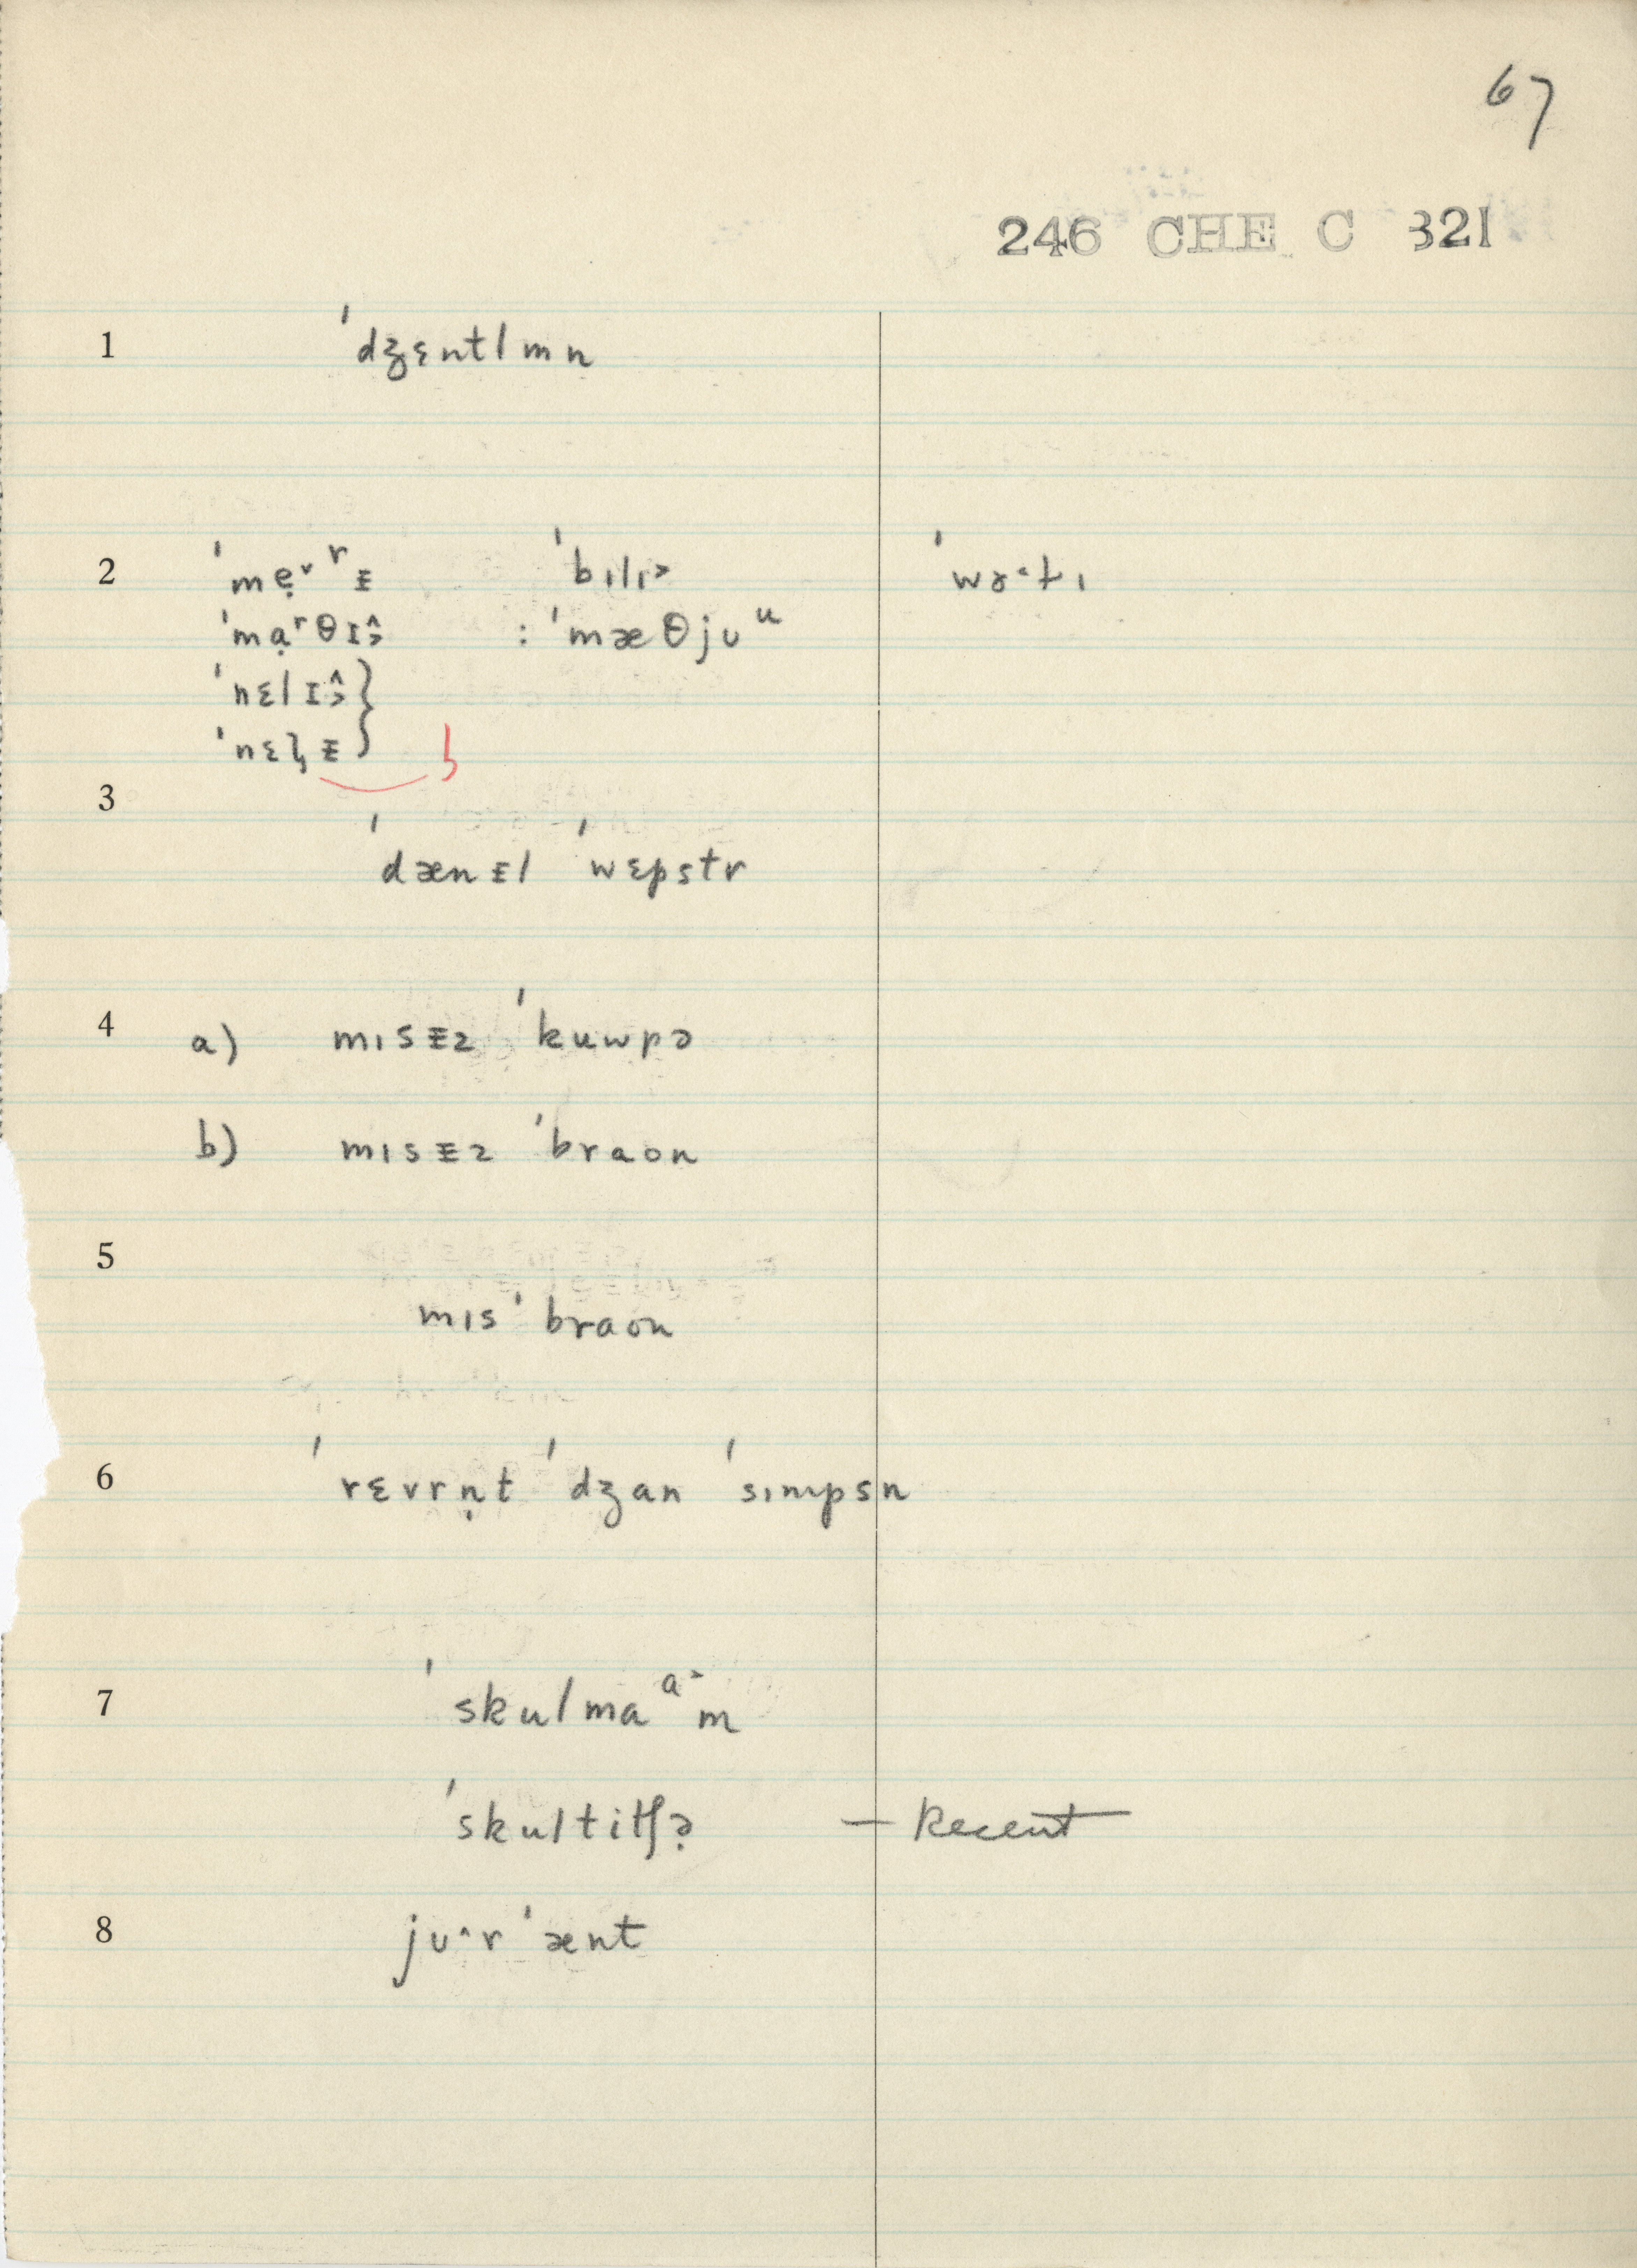 67
246 CHE C 321
1 ˈdʒɛntlmn
2 ˈmẹ˅ʳᵻ ˈbɪlɪ˃ ˈwɤ˂tɪ
ˈmạʳθɪ˄˃ : ˈmæθjʊᵘ
ˈnɛlɪ˄˃ }
ˈnɛɫ̡ᵻ }
3
ˈdænᵻl ˈwɛpstr
4 a) mɪsᵻz ˈkuwpə
b) mɪsᵻz ˈbraon
5
mɪsˈbraon
6 ˈrɛvrṇt ˈdʒan ˈsɪmpsn
7 ˈskulmaᵃ˃m
ˈskultitʃə̣ — Recent
8 jʊ˄r ˈænt